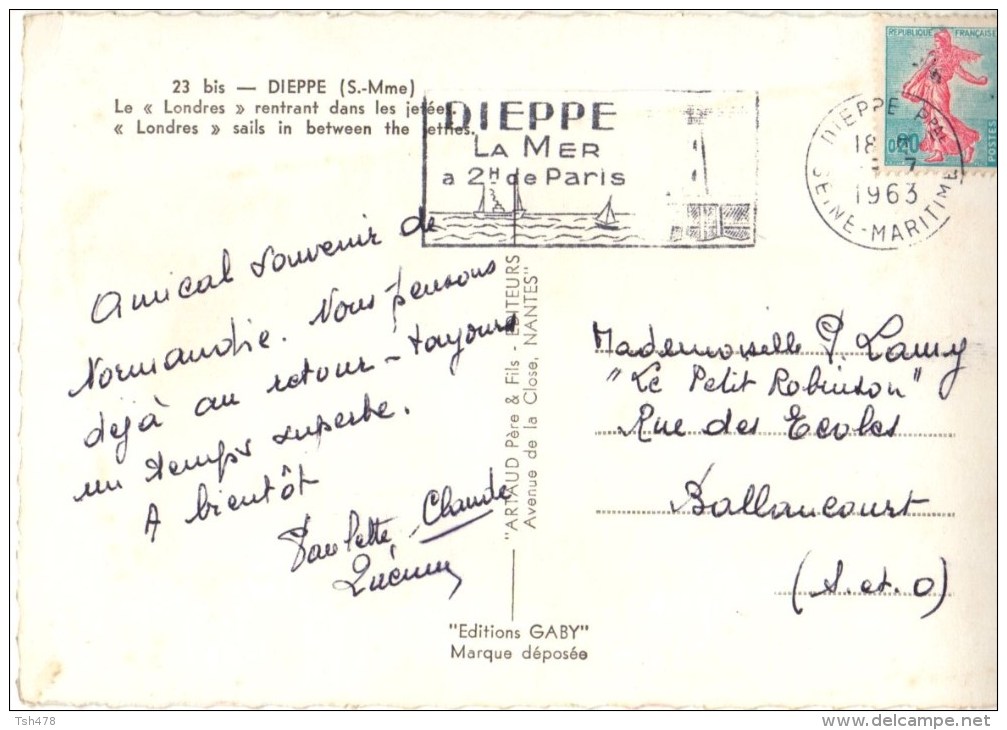 23 bis — DIEPPE (S.-Mme)
Le « Londres » rentrant dans les jetées.
« Londres » sails in between the jetties.
DIEPPE
LA MER
a 2H de Paris
REPUBLIQUE FRANÇAISE
0,20
POSTES
DIEPPE PPAL
18
7
1963
SEINE-MARITIME
Amical souvenir de
Normandie. Nous pensons
déjà au retour - toujours
un temps superbe.
A bientôt
Paulette, Claude
"ARTAUD Père & Fils - EDITEURS
Avenue de la Close, NANTES"
Mademoiselle P. Lamy
"Le Petit Robinson"
Rue des Ecoles
Ballancourt
(S. et. O)
"Editions GABY"
Marque déposée
Tsh478
www.delcampe.net